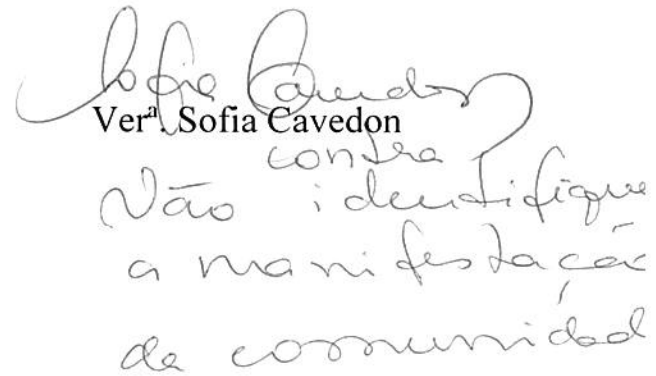 Sofia Cavedon
Verª. Sofia Cavedon
contra
Não identifique
a manifestaçã
da comunidad